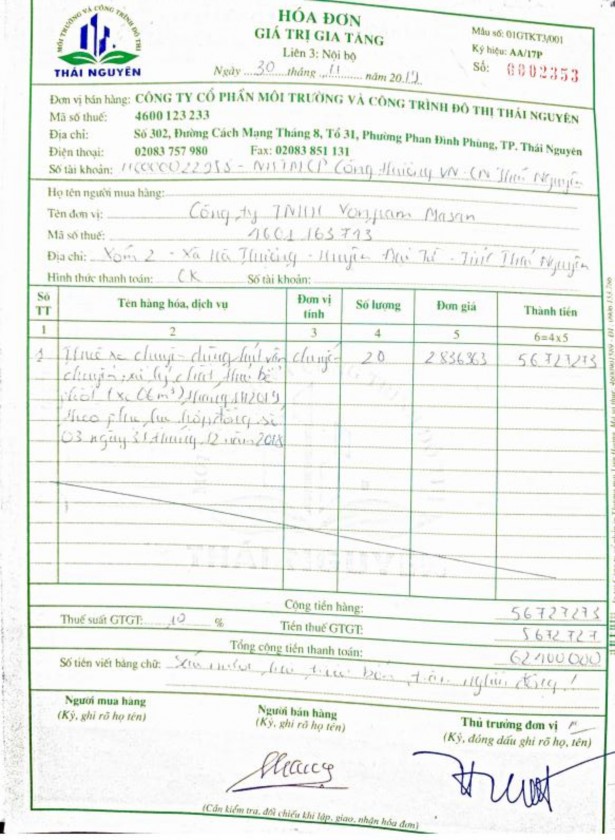 MÔI TRƯỜNG VÀ CÔNG TRÌNH ĐÔ THỊ
THÁI NGUYÊN
HÓA ĐƠN
GIÁ TRỊ GIA TĂNG
Liên 3: Nội bộ
Ngày 30 tháng 11 năm 2019
Mẫu số: 01GTKT3/001
Ký hiệu: AA/17P
Số: 0002353
Đơn vị bán hàng: CÔNG TY CỔ PHẦN MÔI TRƯỜNG VÀ CÔNG TRÌNH ĐÔ THỊ THÁI NGUYÊN
Mã số thuế: 4600 123 233
Địa chỉ: Số 302, Đường Cách Mạng Tháng 8, Tổ 31, Phường Phan Đình Phùng, TP. Thái Nguyên
Điện thoại: 02083 757 980 Fax: 02083 851 131
Số tài khoản: - NHTMCP Công thương VN - CN Thái Nguyên
Họ tên người mua hàng:
Tên đơn vị: Công ty TNHH Vonfram Masan
Mã số thuế: 4601163743
Địa chỉ: Xóm 2 - Xã Hà Thượng - Huyện Đại Từ - Tỉnh Thái Nguyên
Hình thức thanh toán: CK Số tài khoản:
Số TT Tên hàng hóa, dịch vụ Đơn vị tính Số lượng Đơn giá Thành tiền
1 2 3 4 5 6=4x5
1 Thuê xe chuyên dùng hút vận chuyến 20 2836363 56727273
chuyển, xử lý chất thải bể
phốt (xe 6m³) tháng 11/2019
theo phụ lục hợp đồng số
03 ngày 31 tháng 12 năm 2018
Cộng tiền hàng: 56727273
Thuế suất GTGT: 10 % Tiền thuế GTGT: 5672727
Tổng cộng tiền thanh toán: 62400000
Số tiền viết bằng chữ: Sáu mươi hai triệu bốn trăm nghìn đồng!
Người mua hàng
(Ký, ghi rõ họ tên)
Người bán hàng
(Ký, ghi rõ họ tên)
Thủ trưởng đơn vị
(Ký, đóng dấu ghi rõ họ, tên)
(Cần kiểm tra, đối chiếu khi lập, giao, nhận hóa đơn)